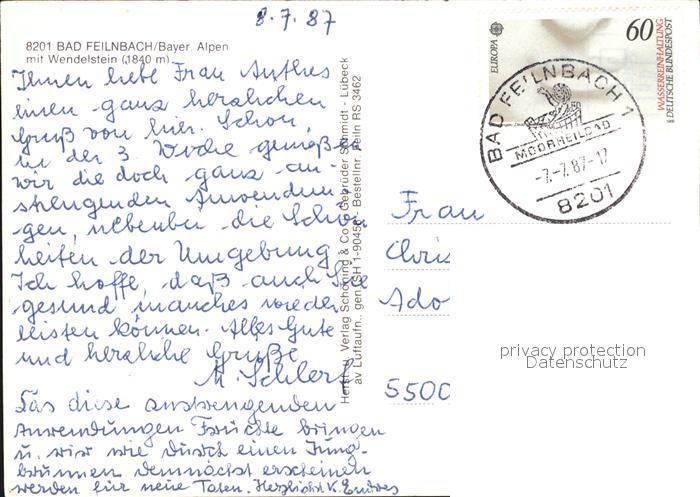 8.7.87
8201 BAD FEILNBACH/Bayer. Alpen
mit Wendelstein (1840 m)
Ihnen liebe Frau Anthes
einen ganz herzlichen
Gruß von hier. Schon
in der 3. Woche genießen
wir die doch ganz an-
strengenden Anwendun-
gen, nebenbei die Schön
heiten der Umgebung.
Ich hoffe, daß auch Sie
gesund manches wieder
leisten können. Alles Gute
und herzliche Grüße
M. Schlerf
Das diese anstrengenden
Anwendungen Früchte bringen
u. wir wie durch einen Jung-
brunnen demnächst erscheinen
werden für neue Taten. Herzlichst K. Endres
Verlag Schöning & Co Gebrüder Schmidt - Lübeck
av Luftaufn., gen. SH 1-90458 - Bestellnr. Feiln RS 3462
EUROPA
60
WASSERREINHALTUNG
DEUTSCHE BUNDESPOST
BAD FEILNBACH 1
MOORHEILBAD
-7.-7.87-17
8201
Frau
Chris
Ado
5500
privacy protection
Datenschutz